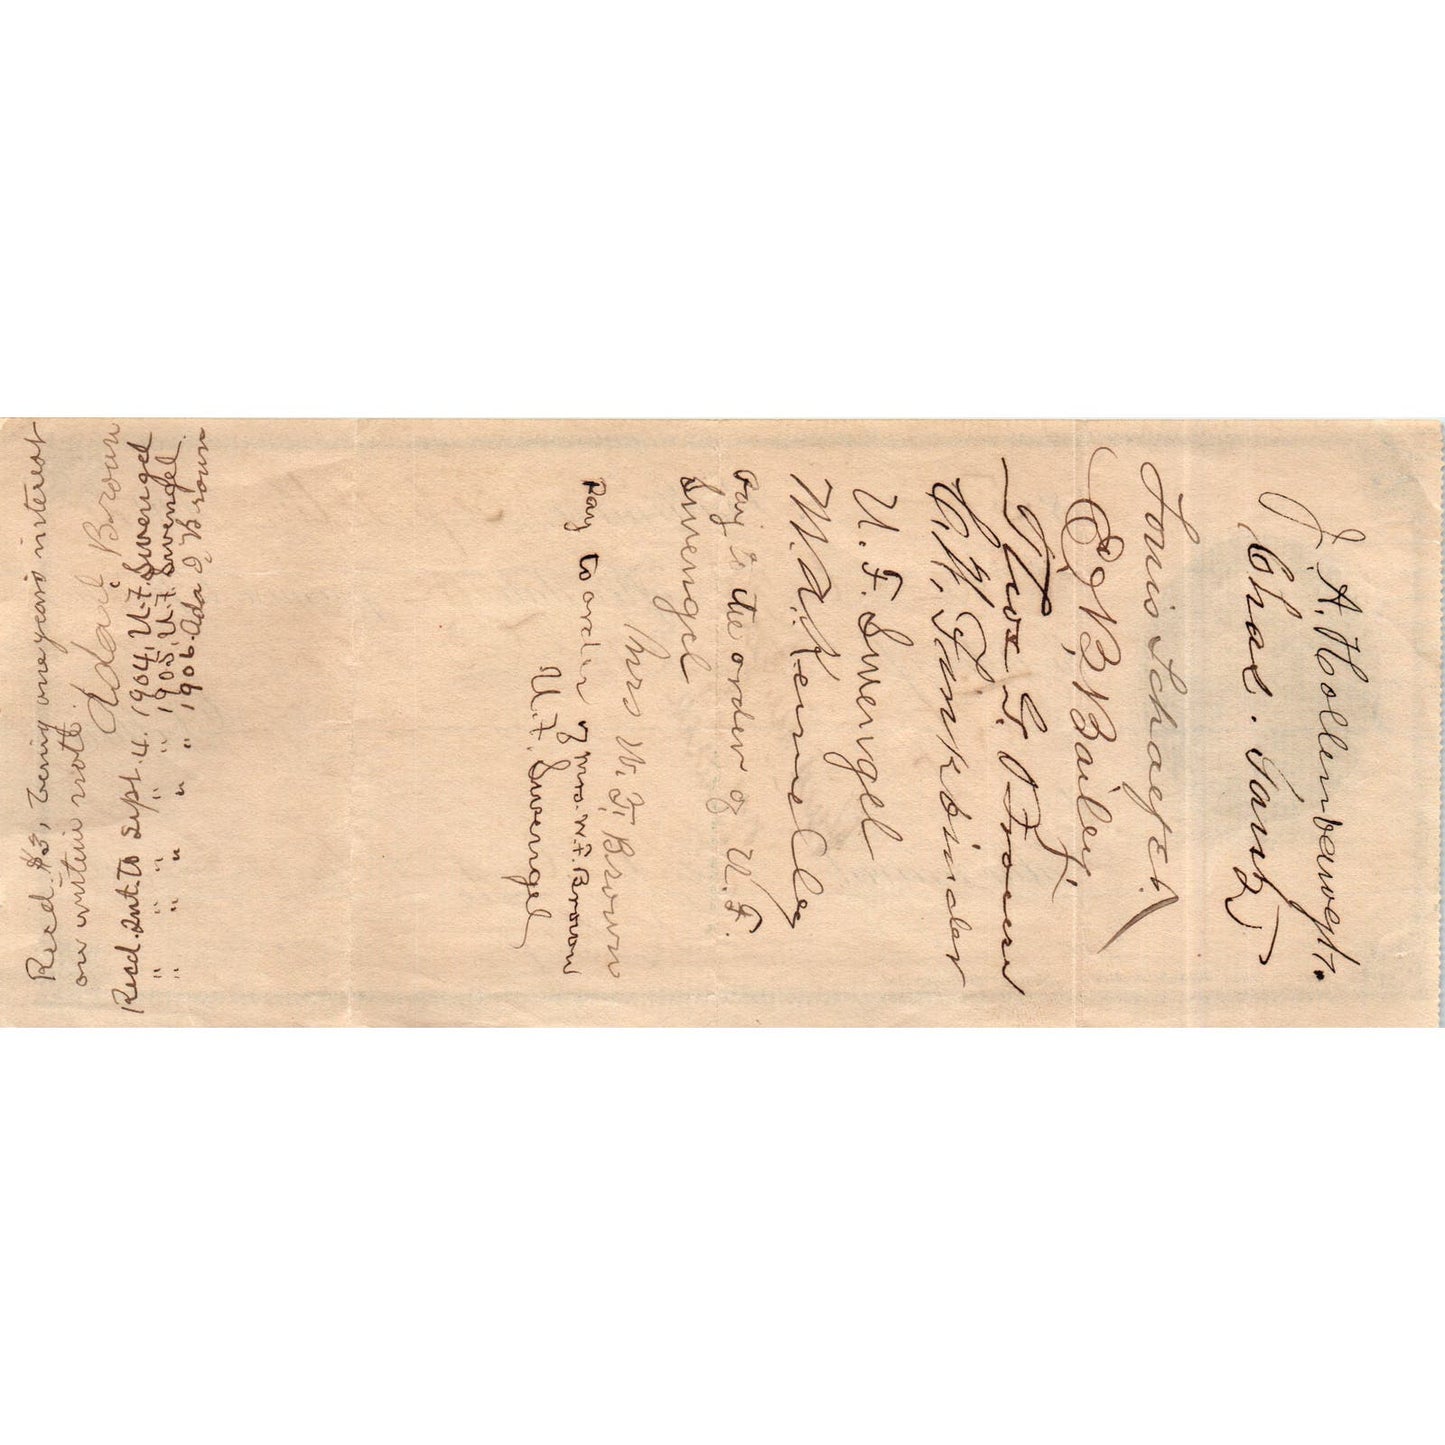 J. A. Hollenbaugh.
Chas. Lantz
Louis Schaefer
E, B, Bailey.
Thos G. Brown
C. W. Finkbinder
U. F. Swengel
M. A. Kennelley
Pay to the order of U. F.
Swengel
Mrs W. F. Brown
Pay to order of Mrs. W. F. Brown
U. F. Swengel
Recd. $3, being one years interest
on within note.
Ada I. Brown
Recd. Int. to Sept. 4. 1904, U. F. Swengel
" " " " 1905, U. F. Swengel
" " " " 1906. Ada I. Brown